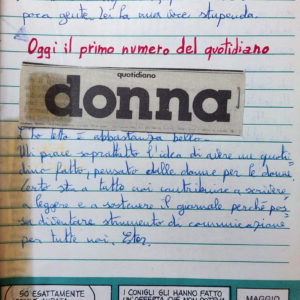 poca gente. Lei ha una voce stupenda.
Oggi il primo numero del quotidiano
quotidiano
donna
L'ho letto è abbastanza bello.
Mi piace soprattutto l'idea di avere un quoti
diano fatto, pensato dalle donne per le donne.
Certo sta a tutte noi contribuire a scrivere
a leggere e a sostenere il giornale perché pos
sa diventare strumento di comunicazione
per tutte noi, Ester.
SO ESATTAMENTE
I CONIGLI GLI HANNO FATTO
UN'OFFERTA CHE NON POTEVA
MAGGIO